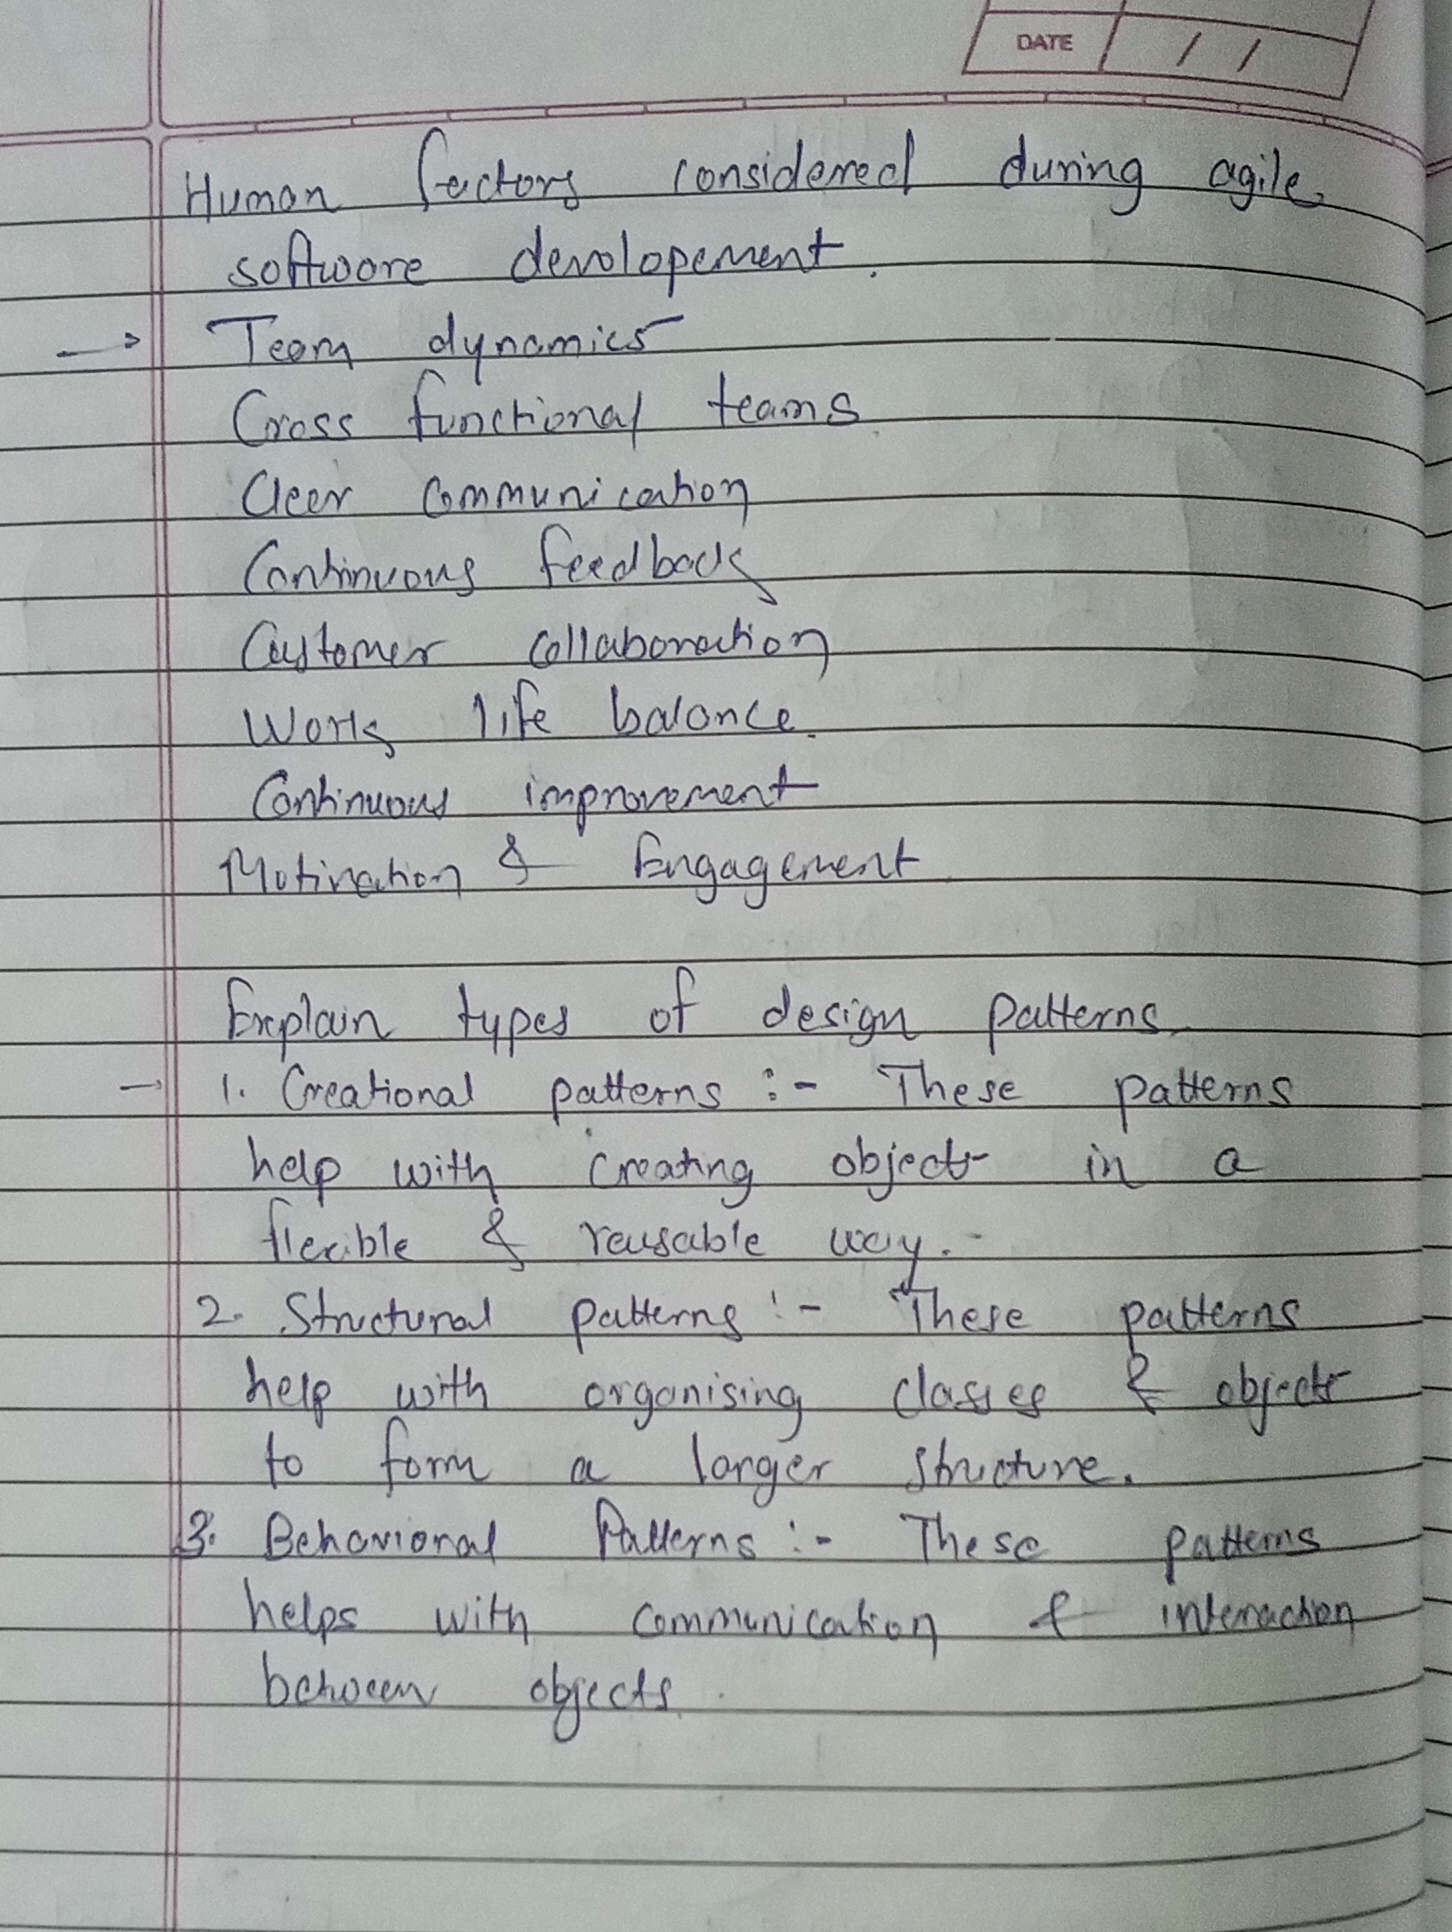 DATE / /
Human factors considered during agile
software devolopement.
→ Team dynamics
Cross functional teams
Clear communication
Continuous feedback
Customer collaboration
Work life balance.
Continuous improvement
Motivation & Engagement
Explain types of design patterns.
→ 1. Creational patterns :- These patterns
help with creating objects in a
flexible & reusable way.
2. Structural patterns :- These patterns
help with organising classes & objects
to form a larger structure.
3. Behavioral Patterns :- These patterns
helps with communication & interaction
between objects.